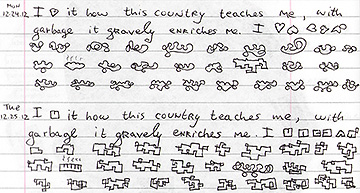 Mon I ♡ it how this country teaches me, with
12.24.12 garbage it gravely enriches me. I
Tue I □ it how this country teaches me, with
12.25.12 garbage it gravely enriches me. I